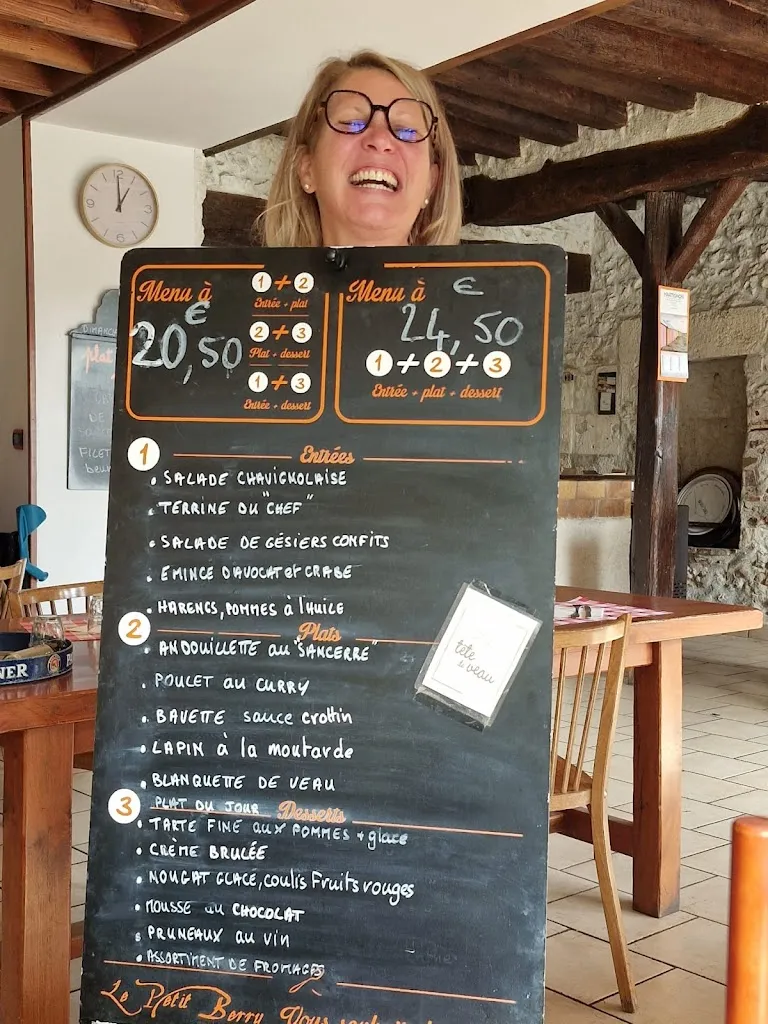 Menu à
€
20,50
1 + 2
Entrée + plat
2 + 3
Plat + dessert
1 + 3
Entrée + dessert
Menu à
€
24,50
1 + 2 + 3
Entrée + plat + dessert
1
Entrées
• SALADE CHAVIGNOLAISE
• TERRINE DU "CHEF"
• SALADE DE GÉSIERS CONFITS
• EMINCE D'AVOCAT et CRABE
• HARENGS, POMMES à l'HUILE
2
Plats
• ANDOUILLETTE au "SANCERRE"
POULET au CURRY
• BAVETTE sauce crottin
• LAPIN à la moutarde
• BLANQUETTE DE VEAU
PLAT DU JOUR
tête
de veau
3
Desserts
• TARTE FINE AUX POMMES + glace
• CRÈME BRULÉE
• NOUGAT GLACE, coulis Fruits rouges
• MOUSSE au CHOCOLAT
• PRUNEAUX au VIN
• ASSORTIMENT DE FROMAGES
Le Petit Berry Vous
DIMANCHE
plat
DE
FILET
NER
12